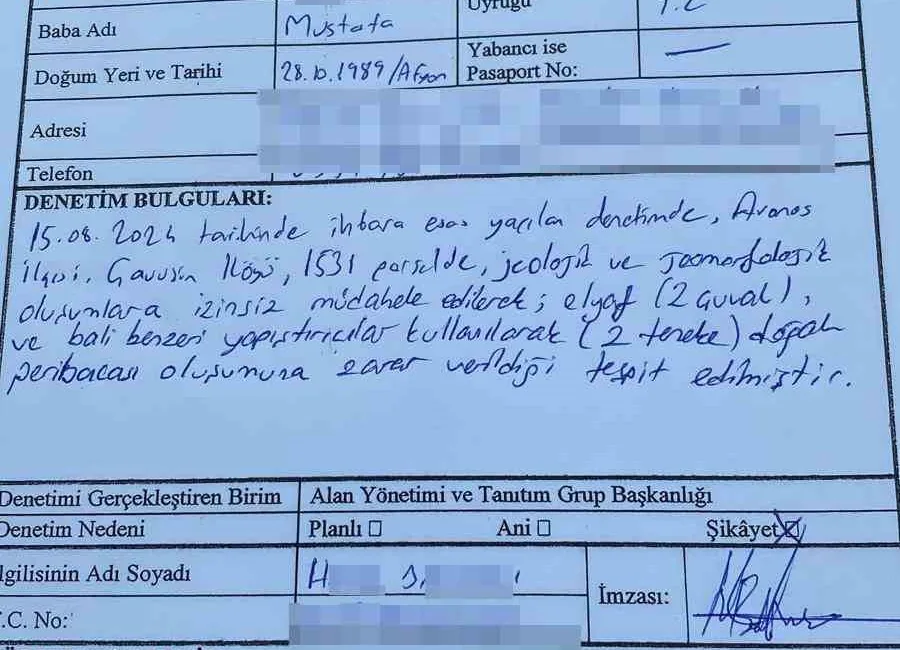 Uyruğu T.C
Baba Adı Mustafa
Doğum Yeri ve Tarihi 28.10.1989/Afyon Yabancı ise Pasaport No: —
Adresi
Telefon
DENETİM BULGULARI:
15.08.2024 tarihinde ihbara esas yapılan denetimde, Avanos
ilçesi, Çavuşin Köyü, 1531 parselde, jeolojik ve jeomorfolojik
oluşumlara izinsiz müdahele edilerek; elyaf (2 çuval),
ve bali benzeri yapıştırıcılar kullanılarak (2 teneke) doğal
peribacası oluşumuna zarar verildiği tespit edilmiştir.
Denetimi Gerçekleştiren Birim Alan Yönetimi ve Tanıtım Grup Başkanlığı
Denetim Nedeni Planlı ☐ Ani ☐ Şikâyet ☒
lgilisinin Adı Soyadı H
İmzası:
.C. No: